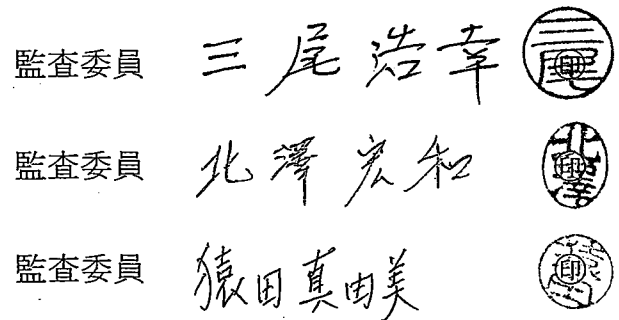 監査委員 三尾浩幸 三尾 印
監査委員 北澤宏和 北澤 印
監査委員 猿田真由美 猿田 印